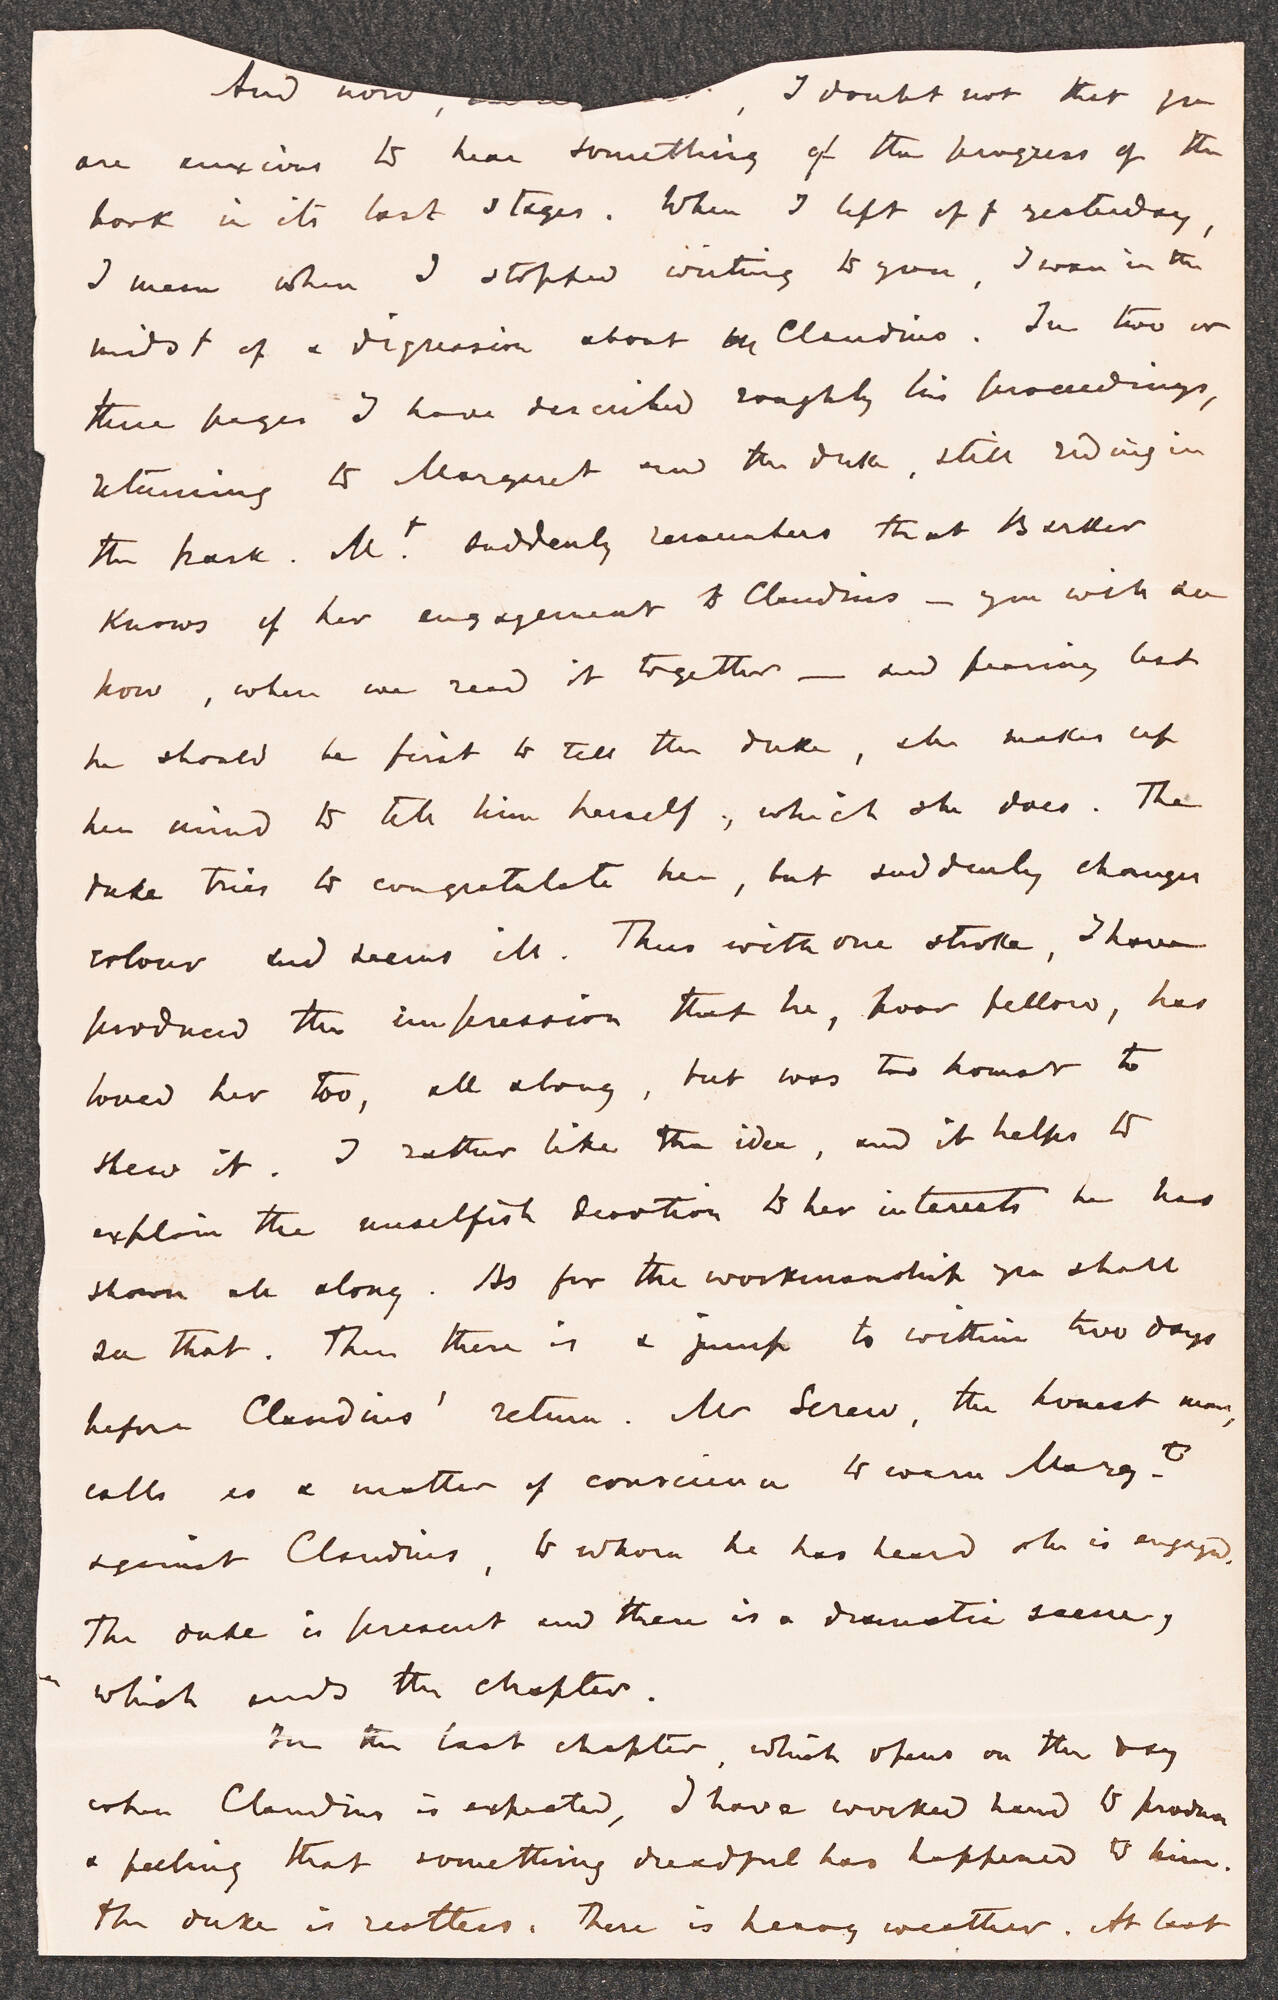 And now, , I doubt not that you
are anxious to hear something of the progress of the
book in its last stages. When I left off yesterday,
I mean when I stopped writing to you, I was in the
midst of a digression about Claudius. In two or
three pages I have described roughly his proceedings,
returning to Margaret and the duke, still riding in
the park. M.t suddenly remembers that Barker
knows of her engagement to Claudius — you will see
how, when we read it together — and fearing lest
he should be first to tell the duke, she makes up
her mind to tell him herself, which she does. The
duke tries to congratulate her, but suddenly changes
colour and seems ill. Thus with one stroke, I have
produced the impression that he, poor fellow, has
loved her too, all along, but was too honest to
shew it. I rather like the idea, and it helps to
explain the unselfish devotion to her interests he has
shown all along. As for the workmanship you shall
see that. Then there is a jump to within two days
before Claudius' return. Mr Screw, the honest man,
calls as a matter of conscience to warn Marg.t
against Claudius, to whom he has heard she is engaged.
The duke is present and there is a dramatic scene,
which ends the chapter.
In the last chapter, which opens on the day
when Claudius is expected, I have worked hard to produce
a feeling that something dreadful has happened to him.
The duke is restless. There is heavy weather. At last